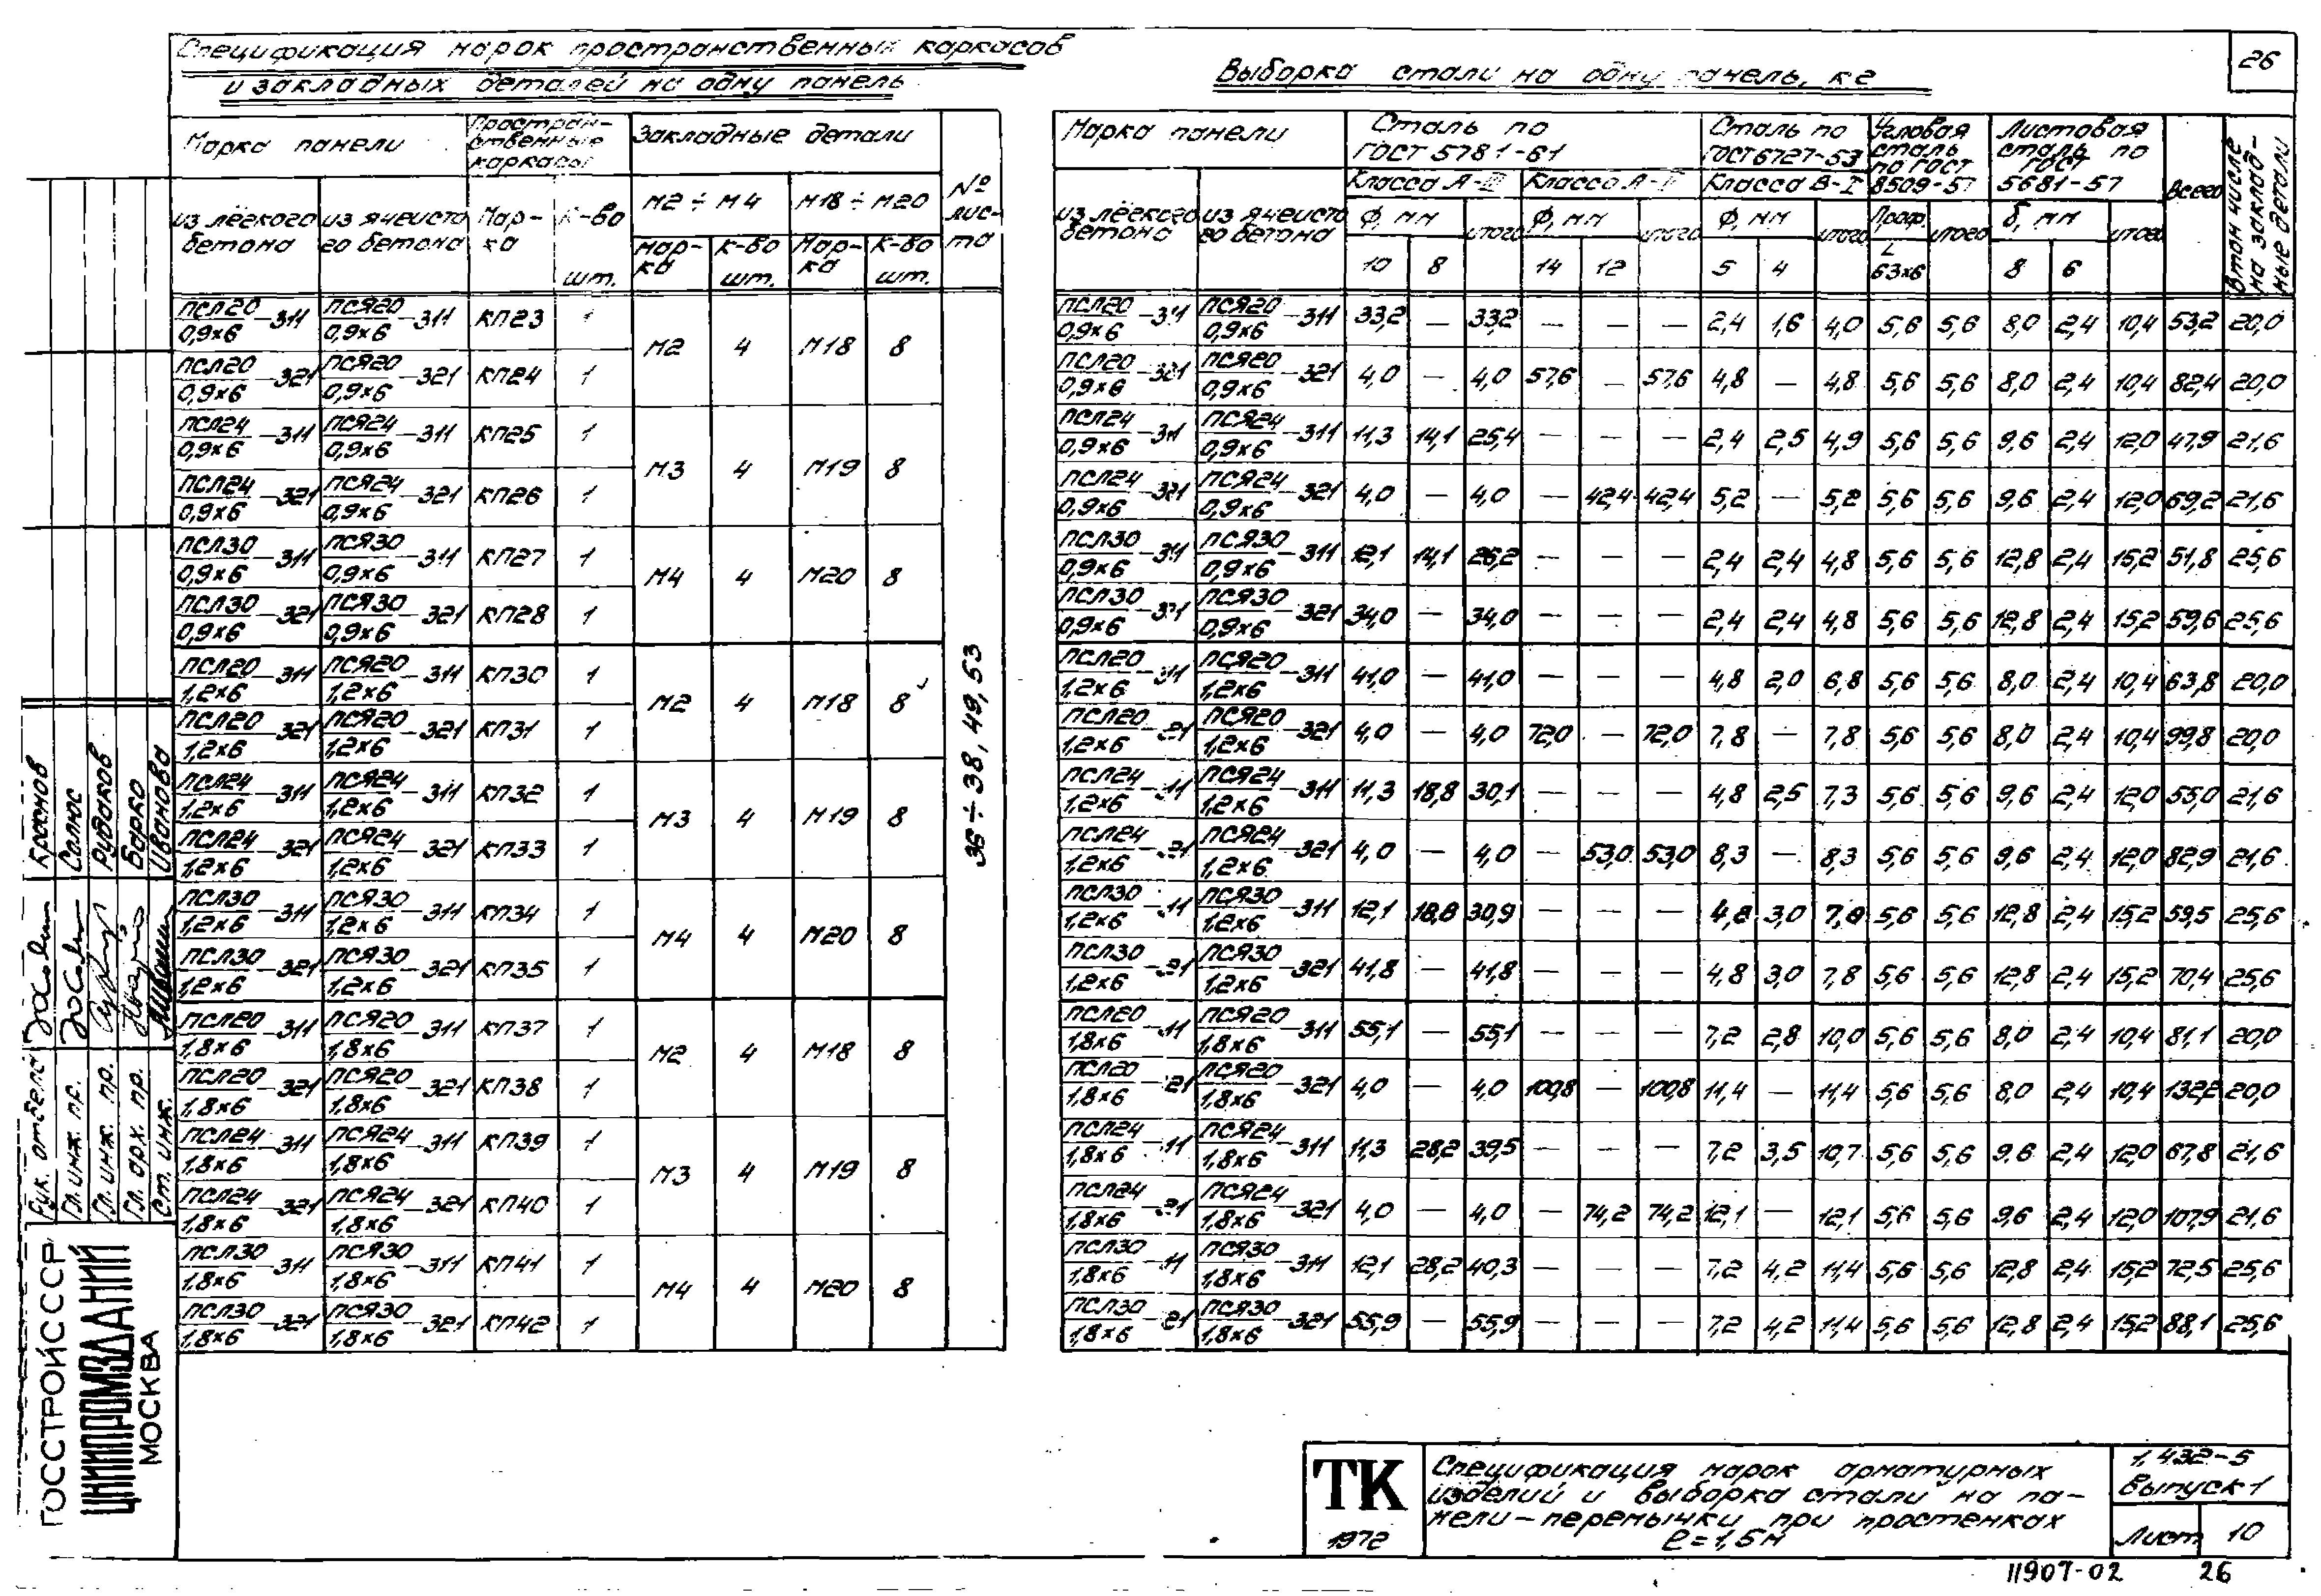 26
Спецификация марок пространственных каркасов
и закладных деталей на одну панель
Марка панели | Простран-ственные каркасы | Закладные детали | № лис-та
из лёгкого бетона | из ячеисто го бетона | Мар-ка | К-во шт. | М2÷М4 | М18÷М20
Мар-ка | К-во шт. | Мар-ка | К-во шт.
ПСЛ20/0,9х6 -311 | ПСЯ20/0,9х6 -311 | КП23 | 1 | М2 | 4 | М18 | 8
ПСЛ20/0,9х6 -321 | ПСЯ20/0,9х6 -321 | КП24 | 1
ПСЛ24/0,9х6 -311 | ПСЯ24/0,9х6 -311 | КП25 | 1 | М3 | 4 | М19 | 8
ПСЛ24/0,9х6 -321 | ПСЯ24/0,9х6 -321 | КП26 | 1
ПСЛ30/0,9х6 -311 | ПСЯ30/0,9х6 -311 | КП27 | 1 | М4 | 4 | М20 | 8
ПСЛ30/0,9х6 -321 | ПСЯ30/0,9х6 -321 | КП28 | 1
ПСЛ20/1,2х6 -311 | ПСЯ20/1,2х6 -311 | КП30 | 1 | М2 | 4 | М18 | 8
ПСЛ20/1,2х6 -321 | ПСЯ20/1,2х6 -321 | КП31 | 1
ПСЛ24/1,2х6 -311 | ПСЯ24/1,2х6 -311 | КП32 | 1 | М3 | 4 | М19 | 8
ПСЛ24/1,2х6 -321 | ПСЯ24/1,2х6 -321 | КП33 | 1
ПСЛ30/1,2х6 -311 | ПСЯ30/1,2х6 -311 | КП34 | 1 | М4 | 4 | М20 | 8
ПСЛ30/1,2х6 -321 | ПСЯ30/1,2х6 -321 | КП35 | 1
ПСЛ20/1,8х6 -311 | ПСЯ20/1,8х6 -311 | КП37 | 1 | М2 | 4 | М18 | 8
ПСЛ20/1,8х6 -321 | ПСЯ20/1,8х6 -321 | КП38 | 1
ПСЛ24/1,8х6 -311 | ПСЯ24/1,8х6 -311 | КП39 | 1 | М3 | 4 | М19 | 8
ПСЛ24/1,8х6 -321 | ПСЯ24/1,8х6 -321 | КП40 | 1
ПСЛ30/1,8х6 -311 | ПСЯ30/1,8х6 -311 | КП41 | 1 | М4 | 4 | М20 | 8
ПСЛ30/1,8х6 -321 | ПСЯ30/1,8х6 -321 | КП42 | 1
36÷38, 49, 53
Выборка стали на одну панель, кг
Марка панели | Сталь по ГОСТ 5781-61 | Сталь по ГОСТ 6727-53 | Угловая сталь по ГОСТ 8509-57 | Листовая сталь по ГОСТ 5681-57 | Всего | В том числе на заклад-ные детали
из лёгкого бетона | из ячеисто го бетона | Класса А-III | Класса А-II | Класса В-I
Ф, мм | итого | Ф, мм | итого | Ф, мм | итого | Проф. | итого | δ, мм | итого
10 | 8 | 14 | 12 | 5 | 4 | L 63х6 | 8 | 6
ПСЛ20/0,9х6 -311 | ПСЯ20/0,9х6 -311 | 33,2 | — | 33,2 | — | — | — | 2,4 | 1,6 | 4,0 | 5,6 | 5,6 | 8,0 | 2,4 | 10,4 | 53,2 | 20,0
ПСЛ20/0,9х6 -321 | ПСЯ20/0,9х6 -321 | 4,0 | — | 4,0 | 57,6 | — | 57,6 | 4,8 | — | 4,8 | 5,6 | 5,6 | 8,0 | 2,4 | 10,4 | 82,4 | 20,0
ПСЛ24/0,9х6 -311 | ПСЯ24/0,9х6 -311 | 11,3 | 14,1 | 25,4 | — | — | — | 2,4 | 2,5 | 4,9 | 5,6 | 5,6 | 9,6 | 2,4 | 12,0 | 47,9 | 21,6
ПСЛ24/0,9х6 -321 | ПСЯ24/0,9х6 -321 | 4,0 | — | 4,0 | — | 42,4 | 42,4 | 5,2 | — | 5,2 | 5,6 | 5,6 | 9,6 | 2,4 | 12,0 | 69,2 | 21,6
ПСЛ30/0,9х6 -311 | ПСЯ30/0,9х6 -311 | 12,1 | 14,1 | 26,2 | — | — | — | 2,4 | 2,4 | 4,8 | 5,6 | 5,6 | 12,8 | 2,4 | 15,2 | 51,8 | 25,6
ПСЛ30/0,9х6 -321 | ПСЯ30/0,9х6 -321 | 34,0 | — | 34,0 | — | — | — | 2,4 | 2,4 | 4,8 | 5,6 | 5,6 | 12,8 | 2,4 | 15,2 | 59,6 | 25,6
ПСЛ20/1,2х6 -11 | ПСЯ20/1,2х6 -311 | 41,0 | — | 41,0 | — | — | — | 4,8 | 2,0 | 6,8 | 5,6 | 5,6 | 8,0 | 2,4 | 10,4 | 63,8 | 20,0
ПСЛ20/1,2х6 -21 | ПСЯ20/1,2х6 -321 | 4,0 | — | 4,0 | 72,0 | — | 72,0 | 7,8 | — | 7,8 | 5,6 | 5,6 | 8,0 | 2,4 | 10,4 | 99,8 | 20,0
ПСЛ24/1,2х6 -11 | ПСЯ24/1,2х6 -311 | 11,3 | 18,8 | 30,1 | — | — | — | 4,8 | 2,5 | 7,3 | 5,6 | 5,6 | 9,6 | 2,4 | 12,0 | 55,0 | 21,6
ПСЛ24/1,2х6 -21 | ПСЯ24/1,2х6 -321 | 4,0 | — | 4,0 | — | 53,0 | 53,0 | 8,3 | — | 8,3 | 5,6 | 5,6 | 9,6 | 2,4 | 12,0 | 82,9 | 21,6
ПСЛ30/1,2х6 -11 | ПСЯ30/1,2х6 -311 | 12,1 | 18,8 | 30,9 | — | — | — | 4,8 | 3,0 | 7,8 | 5,6 | 5,6 | 12,8 | 2,4 | 15,2 | 59,5 | 25,6
ПСЛ30/1,2х6 -21 | ПСЯ30/1,2х6 -321 | 41,8 | — | 41,8 | — | — | — | 4,8 | 3,0 | 7,8 | 5,6 | 5,6 | 12,8 | 2,4 | 15,2 | 70,4 | 25,6
ПСЛ20/1,8х6 -11 | ПСЯ20/1,8х6 -311 | 55,1 | — | 55,1 | — | — | — | 7,2 | 2,8 | 10,0 | 5,6 | 5,6 | 8,0 | 2,4 | 10,4 | 81,1 | 20,0
ПСЛ20/1,8х6 -21 | ПСЯ20/1,8х6 -321 | 4,0 | — | 4,0 | 100,8 | — | 100,8 | 11,4 | — | 11,4 | 5,6 | 5,6 | 8,0 | 2,4 | 10,4 | 132,2 | 20,0
ПСЛ24/1,8х6 -11 | ПСЯ24/1,8х6 -311 | 11,3 | 28,2 | 39,5 | — | — | — | 7,2 | 3,5 | 10,7 | 5,6 | 5,6 | 9,6 | 2,4 | 12,0 | 67,8 | 21,6
ПСЛ24/1,8х6 -21 | ПСЯ24/1,8х6 -321 | 4,0 | — | 4,0 | — | 74,2 | 74,2 | 12,1 | — | 12,1 | 5,6 | 5,6 | 9,6 | 2,4 | 12,0 | 107,9 | 21,6
ПСЛ30/1,8х6 -11 | ПСЯ30/1,8х6 -311 | 12,1 | 28,2 | 40,3 | — | — | — | 7,2 | 4,2 | 11,4 | 5,6 | 5,6 | 12,8 | 2,4 | 15,2 | 72,5 | 25,6
ПСЛ30/1,8х6 -21 | ПСЯ30/1,8х6 -321 | 55,9 | — | 55,9 | — | — | — | 7,2 | 4,2 | 11,4 | 5,6 | 5,6 | 12,8 | 2,4 | 15,2 | 88,1 | 25,6
Рук. отдела Краснов
Гл. инж. пр. Салюс
Гл. инж. пр. Рудаков
Гл. арх. пр. Барко
Ст. инж. Иванова
ГОССТРОЙ СССР
ЦНИИПРОМЗДАНИЙ
МОСКВА
ТК
1972
Спецификация марок арматурных
изделий и выборка стали на па-
нели-перемычки при простенках
ℓ=1,5м
1.432-5
Выпуск 1
Лист 10
11907-02 26